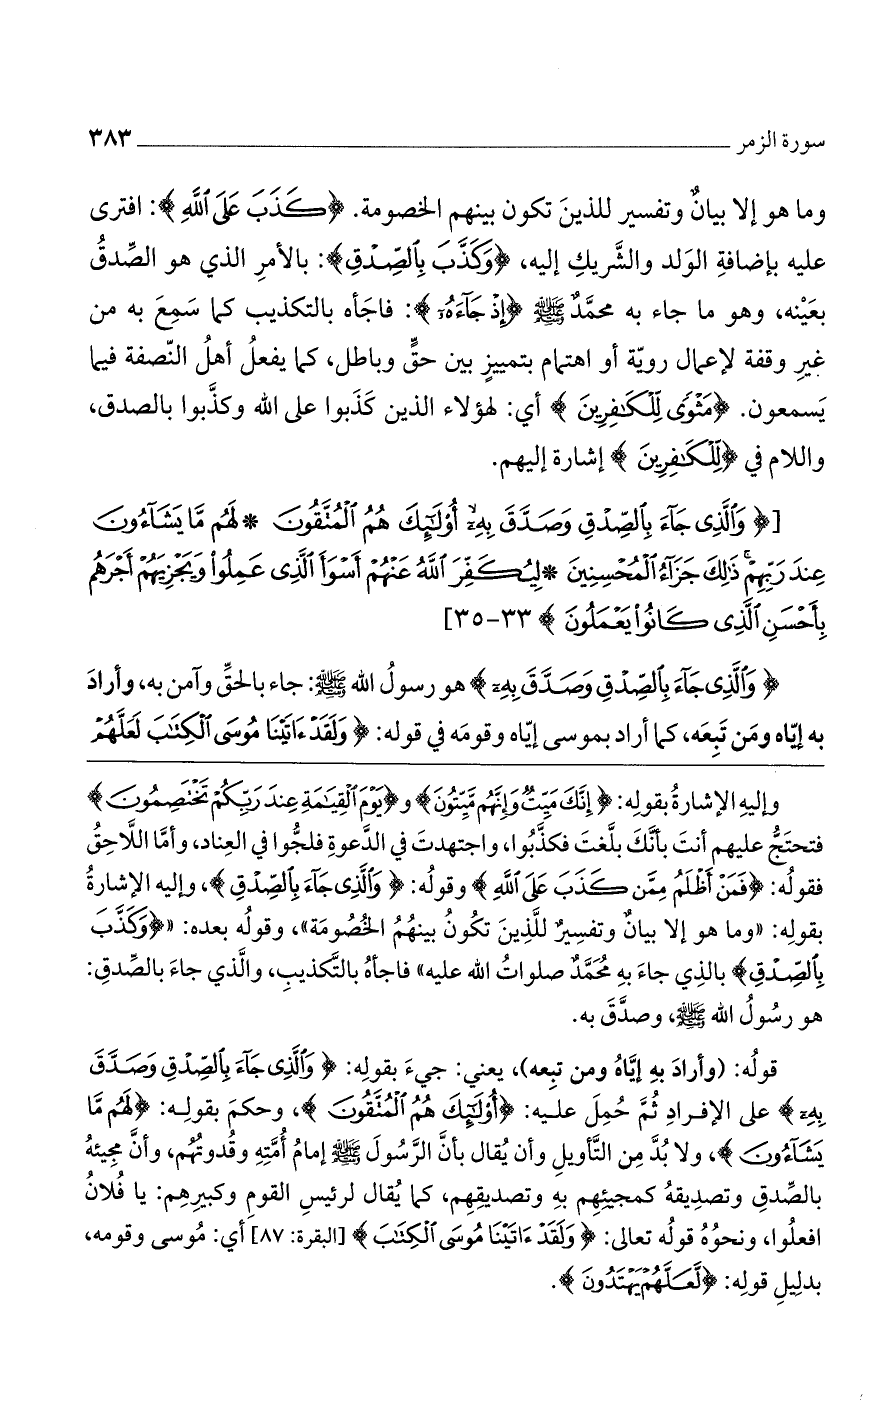 سورة الزمر ٣٨٣
وما هو إلا بيانٌ وتفسير للذينَ تكون بينهم الخصومة. ﴿كَذَبَ عَلَى ٱللَّهِ﴾: افترى
عليه بإضافةِ الوَلد والشَّريكِ إليه، ﴿وَكَذَّبَ بِٱلصِّدْقِ﴾: بالأمرِ الذي هو الصِّدقُ
بعَيْنه، وهو ما جاء به محمَّدٌ ﷺ ﴿إِذْ جَآءَهُۥٓ﴾: فاجَأه بالتكذيب كما سَمِعَ به من
غيرِ وقفة لإعمال رويّة أو اهتمام بتمييزٍ بين حقٍّ وباطل، كما يفعلُ أهلُ النّصفة فيما
يَسمعون. ﴿مَثْوًى لِّلْكَـٰفِرِينَ﴾ أي: لهؤلاء الذين كَذَبوا على الله وكذَّبوا بالصدق،
واللام في ﴿لِّلْكَـٰفِرِينَ﴾ إشارة إليهم.
[﴿وَٱلَّذِى جَآءَ بِٱلصِّدْقِ وَصَدَّقَ بِهِۦٓ ۙ أُوْلَـٰٓئِكَ هُمُ ٱلْمُتَّقُونَ * لَهُم مَّا يَشَآءُونَ
عِندَ رَبِّهِمْ ۚ ذَٰلِكَ جَزَآءُ ٱلْمُحْسِنِينَ * لِيُكَفِّرَ ٱللَّهُ عَنْهُمْ أَسْوَأَ ٱلَّذِى عَمِلُوا۟ وَيَجْزِيَهُمْ أَجْرَهُم
بِأَحْسَنِ ٱلَّذِى كَانُوا۟ يَعْمَلُونَ﴾ ٣٣-٣٥]
﴿وَٱلَّذِى جَآءَ بِٱلصِّدْقِ وَصَدَّقَ بِهِۦٓ﴾ هو رسولُ الله ﷺ: جاء بالحقِّ وآمن به، وأرادَ
به إيّاه ومَن تَبِعَه، كما أراد بموسى إيّاه وقومَه في قوله: ﴿وَلَقَدْ ءَاتَيْنَا مُوسَى ٱلْكِتَـٰبَ لَعَلَّهُمْ
وإليهِ الإشارةُ بقولِه: ﴿إِنَّكَ مَيِّتٌ وَإِنَّهُم مَّيِّتُونَ﴾ و﴿يَوْمَ ٱلْقِيَـٰمَةِ عِندَ رَبِّكُمْ تَخْتَصِمُونَ﴾
فتحتَجُّ عليهم أنتَ بأنَّكَ بلَّغتَ فكذَّبُوا، واجتهدتَ في الدَّعوةِ فلجُّوا في العِناد، وأمَّا اللَّاحِقُ
فقولُه: ﴿فَمَنْ أَظْلَمُ مِمَّن كَذَبَ عَلَى ٱللَّهِ﴾ وقولُه: ﴿وَٱلَّذِى جَآءَ بِٱلصِّدْقِ﴾، وإليه الإشارةُ
بقولِه: «وما هو إلا بيانٌ وتفسِيرٌ للَّذِينَ تكُونُ بينهُمُ الخُصُومَة»، وقولُه بعده: «﴿وَكَذَّبَ
بِٱلصِّدْقِ﴾ بالذِي جاءَ بِهِ مُحَمَّدٌ صلواتُ الله عليه» فاجأهُ بالتَّكذِيبِ، والَّذي جاءَ بالصِّدقِ:
هو رسُولُ الله ﷺ، وصدَّقَ به.
قولُه: (وأرادَ بهِ إيَّاهُ ومن تبِعه)، يعني: جيءَ بقولِه: ﴿وَٱلَّذِى جَآءَ بِٱلصِّدْقِ وَصَدَّقَ
بِهِۦٓ﴾ على الإفرادِ ثُمَّ حُمِلَ عليه: ﴿أُوْلَـٰٓئِكَ هُمُ ٱلْمُتَّقُونَ﴾، وحكمَ بقولِه: ﴿لَهُم مَّا
يَشَآءُونَ﴾، ولا بُدَّ مِن التَّأويلِ وأن يُقال بأنَّ الرَّسُولَ ﷺ إمامُ أُمَّتِهِ وقُدوتُهُم، وأنَّ مجِيئهُ
بالصِّدقِ وتصدِيقهُ كمجيئِهِم بهِ وتصديقِهِم، كما يُقال لرئيسِ القومِ وكبيرِهِم: يا فُلانُ
افعلُوا، ونحوُهُ قولُه تعالى: ﴿وَلَقَدْ ءَاتَيْنَا مُوسَى ٱلْكِتَـٰبَ﴾ [البقرة: ٨٧] أي: مُوسى وقومه،
بدلِيلِ قولِه: ﴿لَعَلَّهُمْ يَهْتَدُونَ﴾.